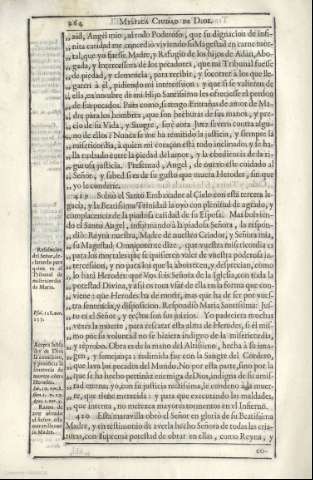 264 MYSTICA CIUDAD DE DIOS.
ziò, Angel mio, al todo Poderoso, que su dignacion de infi-
nita caridad me concedió viviendo su Magestad en carne mor-
tal, que yo fuesse Madre, y Refugio de los hijos de Adàn, Abo-
gada, y Intercessora de los pecadores, que mi Tribunal fuesse
de piedad, y clemencia, para recibir, y socorrer à los que lle-
garen à èl, pidiendo mi intercession: y que si se valieran de
ella, en nombre de mi Hijo Santissimo les ofreciesse el perdon
de sus pecados. Pues como, si tengo Entrañas de amor de Ma-
dre para los hombres, que son hechuras de sus manos, y pre-
cio de su Vida, y Sangre, serè aora Juez severo contra algu-
no de ellos? Nunca se me ha remitido la justicia, y siempre la
misericordia, à quien mi coraçon està todo inclinado, y se ha-
lla turbado entre la piedad del amor, y la obediencia de la ri-
gurosa justicia. Presentad, Angel, de nuevo este cuidado al
Señor, y sabed si es de su gusto que muera Herodes, sin que
yo le condene.
419 Subiò el Santo Embaxador al Cielo con esta tercera le-
gacia, y la Beatissima Trinidad la oyò con plenitud de agrado, y
complacencia de la piadosa caridad de su Esposa. Mas bolvien-
do el Santo Angel, informando à la piadosa Señora, la respon-
diò: Reyna nuestra, Madre de nuestro Criador, y Señora mia,
su Magestad Omnipotente dize, que vuestra misericordia es
para los mortales que se quisieren valer de vuestra poderosa in-
tercession, y no para los que la aborrecen, y desprecian, como
lo harà Herodes: que Vos sois Señora de la Iglesia, con toda la
potestad Divina, y assi os toca usar de ella en la forma que con-
viene: que Herodes ha de morir, mas que ha de ser por vues-
tra sentencia, y disposicion. Respondiò Maria Santissima: Jus-
to es el Señor, y rectos son sus juizios. Yo padeciera muchas
vezes la muerte, para rescatar esta alma de Herodes, si èl mis-
mo por su voluntad no se hiziera indigno de la misericordia,
y reprobo. Obra es de la mano del Altissimo, hecha à su ima-
gen, y semejança: redimida fue con la Sangre del Cordero,
que lava los pecados del Mundo. No por esta parte, sino por la
que se ha hecho pertinàz enemigo de Dios, indigno de su amis-
tad eterna: yo, con su justicia rectissima, le condeno à la muer-
te, que tiene merecida: y para que executando las maldades,
que intenta, no merezca mayores tormentos en el Infierno.
420 Esta maravilla obrò el Señor en gloria de su Beatissima
Madre, y en testimonio de averla hecho Señora de todas las cria-
turas, con suprema potestad de obrar en ellas, como Reyna, y
co-
Psal. 118. v.
137.